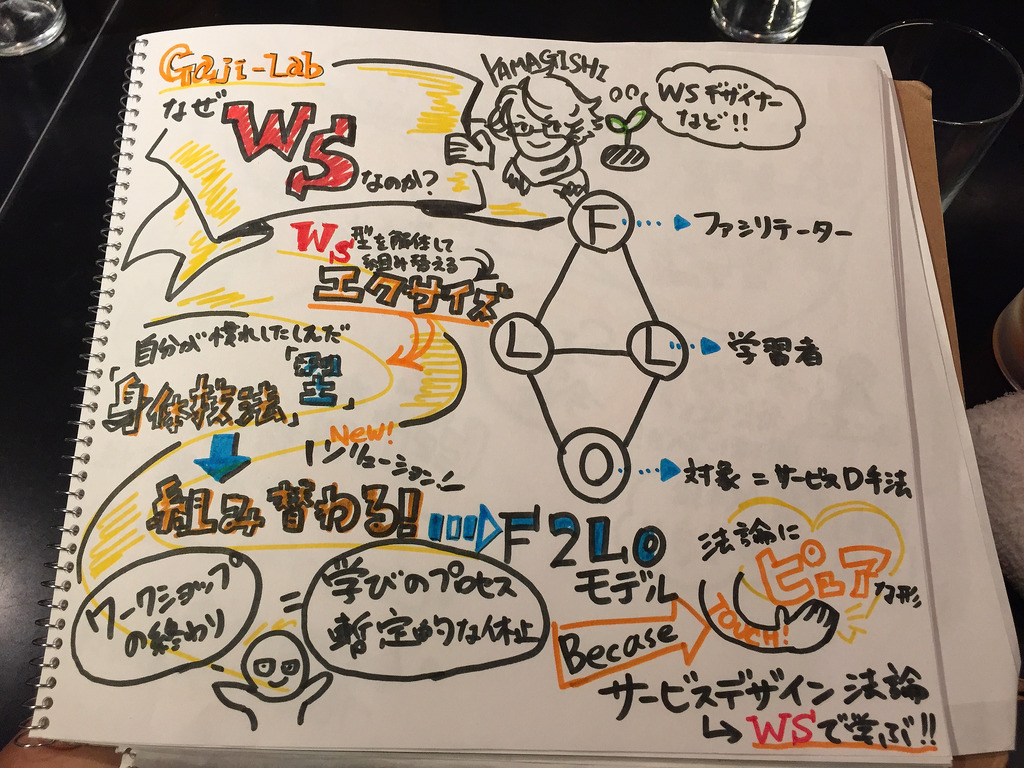 Gaji-Lab
なぜ
WS
なのか?
YAMAGISHI
WSデザイナー
など!!
F
ファシリテーター
WS型を解体して
組み替える
エクササイズ
L
L
学習者
自分が慣れしたしんだ
「身体技法」「型」
New!
ソリューション!
O
対象=サービスD手法
組み替わる!
F2LO
モデル
法論に
ピュアな形
TOUCH!
ワークショップ
の終わり
=
学びのプロセス
暫定的な休止
Becase
サービスデザイン法論
WSで学ぶ!!